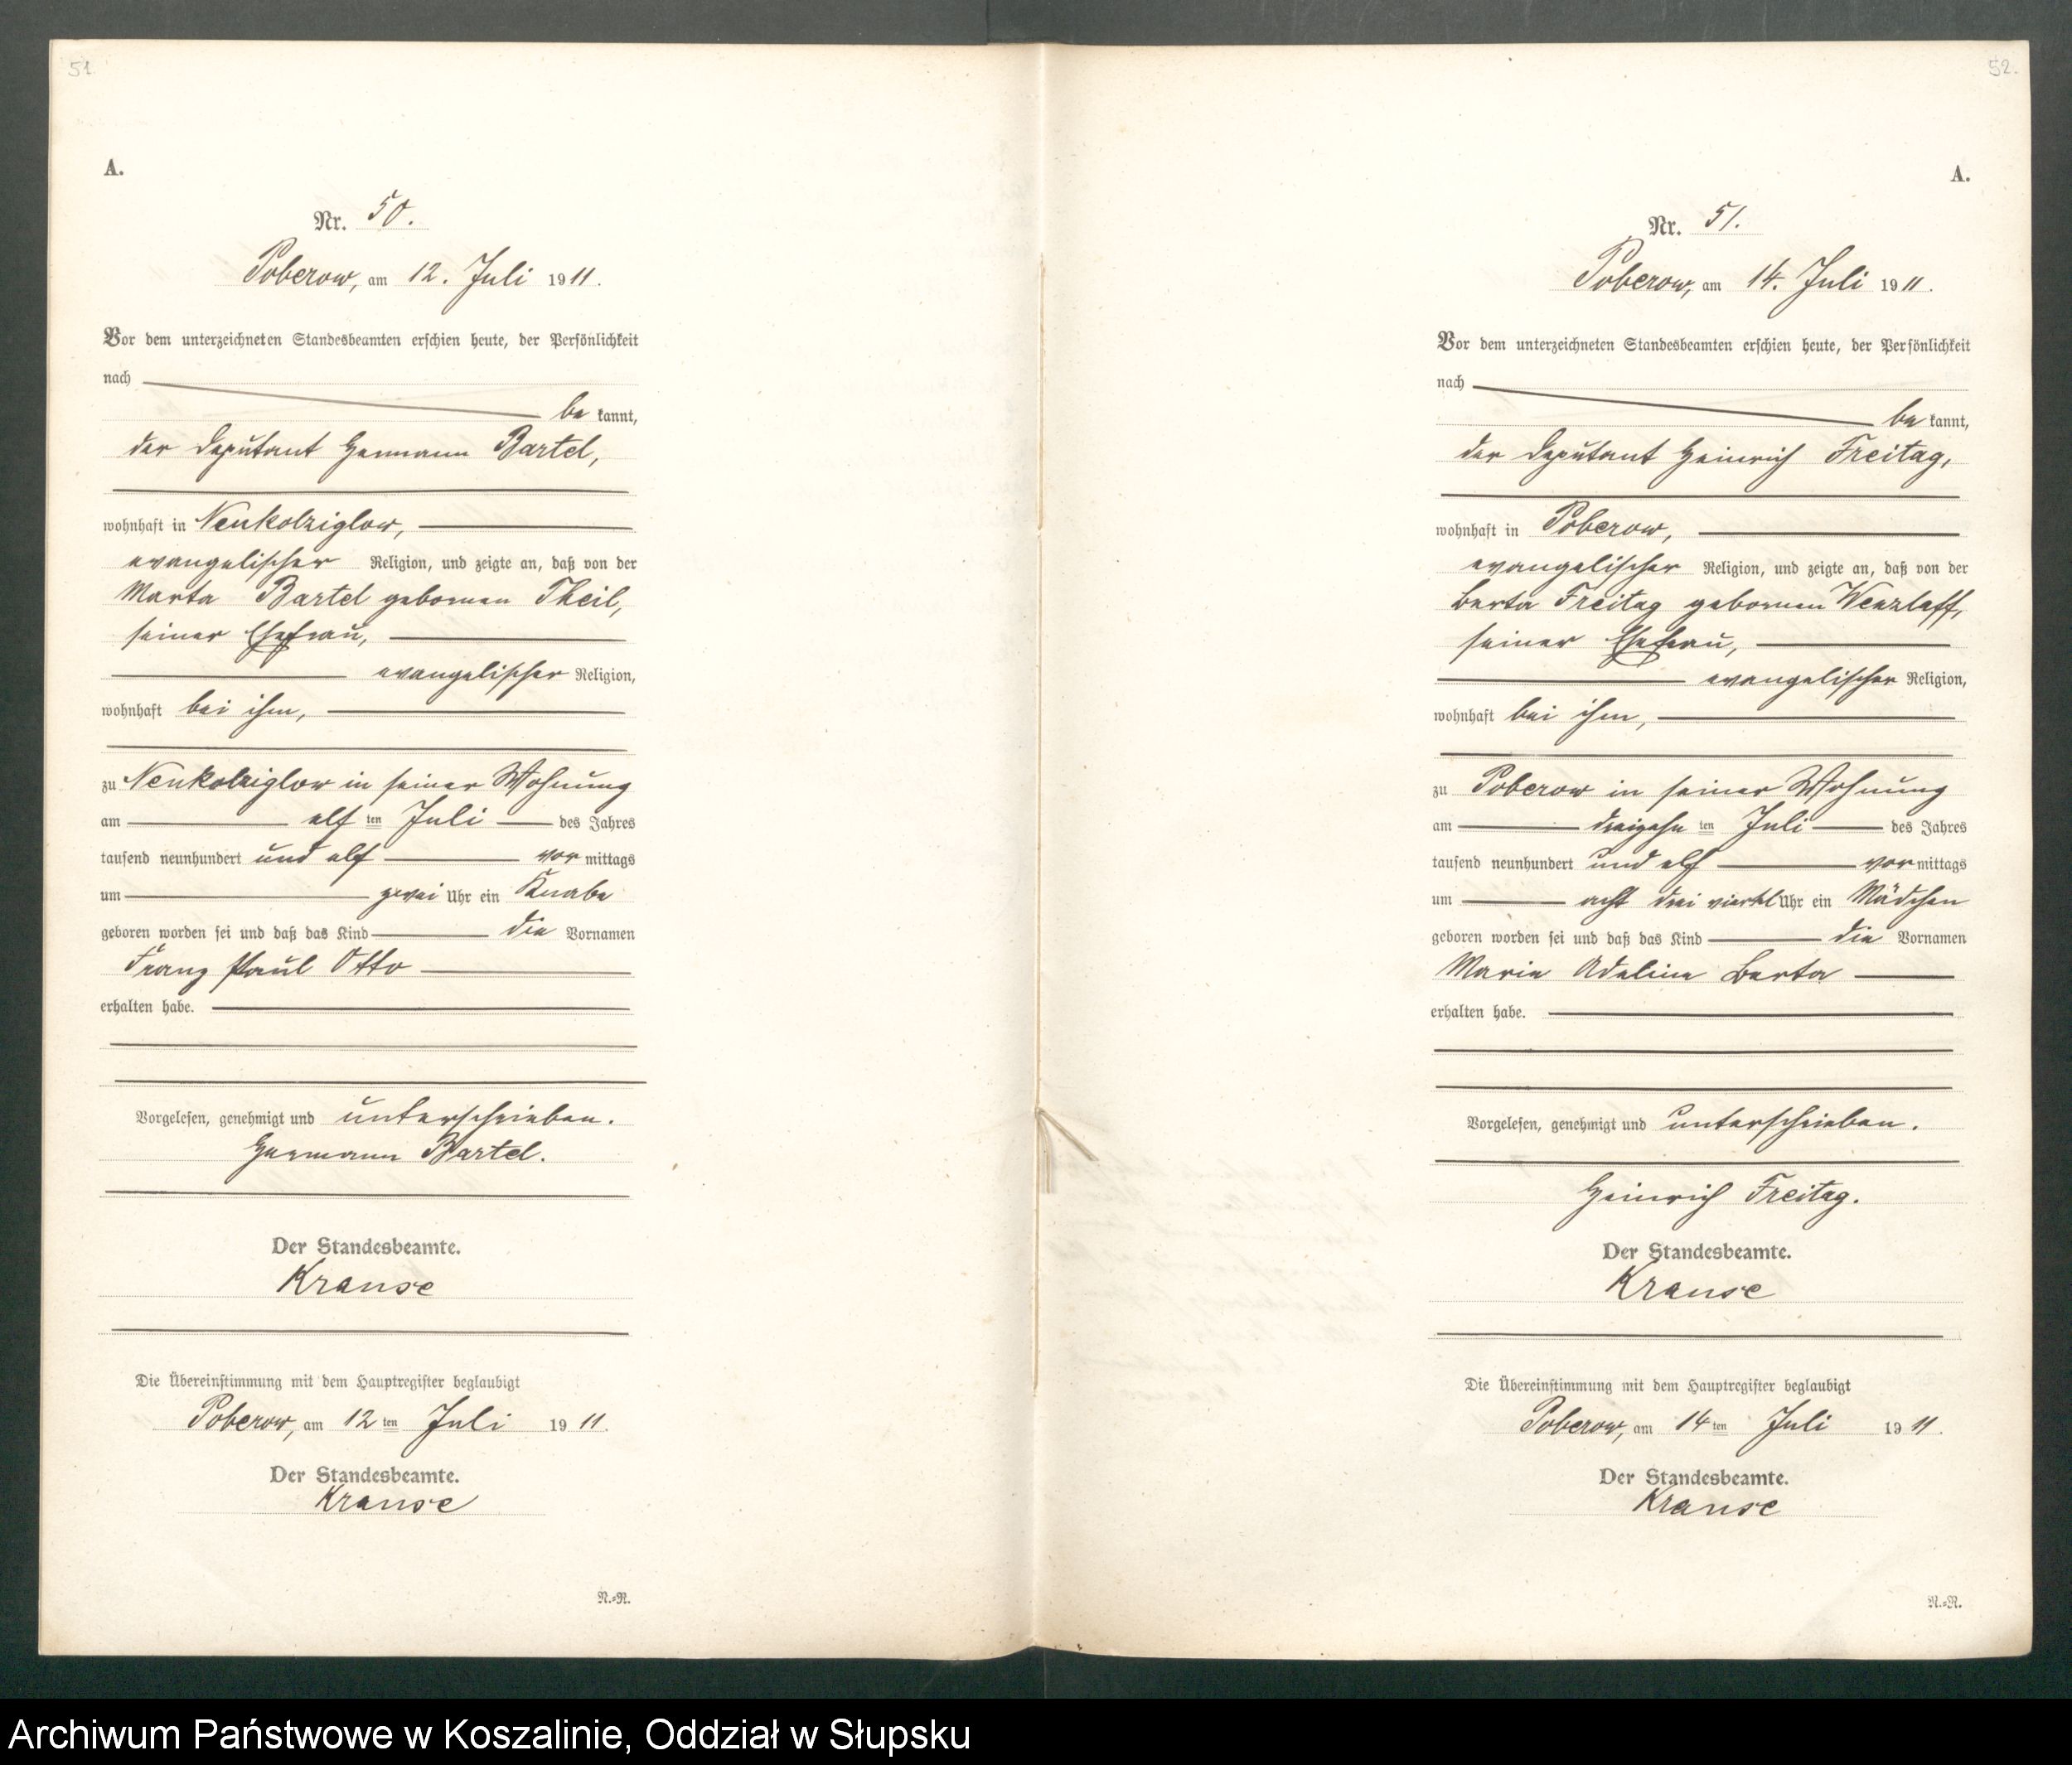 51
A.
Nr. 50.
Poberow, am 12. Juli 1911.
Vor dem unterzeichneten Standesbeamten erschien heute, der Persönlichkeit
nach
be kannt,
der Deputant Hermann Bartel,
wohnhaft in Neukolziglow,
evangelischer Religion, und zeigte an, daß von der
Marta Bartel gebornen Theil,
seiner Ehefrau,
evangelischer Religion,
wohnhaft bei ihm,
zu Neukolziglow in seiner Wohnung
am elf ten Juli des Jahres
tausend neunhundert und elf vor mittags
um zwei Uhr ein Knabe
geboren worden sei und daß das Kind die Vornamen
Franz Paul Otto
erhalten habe.
Vorgelesen, genehmigt und unterschrieben.
Hermann Bartel.
Der Standesbeamte.
Krause
Die Übereinstimmung mit dem Hauptregister beglaubigt
Poberow, am 12 ten Juli 1911.
Der Standesbeamte.
Krause
N.=R.
52.
A.
Nr. 51.
Poberow, am 14. Juli 1911.
Vor dem unterzeichneten Standesbeamten erschien heute, der Persönlichkeit
nach
be kannt,
der Deputant Heinrich Freitag,
wohnhaft in Poberow,
evangelischer Religion, und zeigte an, daß von der
Berta Freitag gebornen Wenzlaff,
seiner Ehefrau,
evangelischer Religion,
wohnhaft bei ihm,
zu Poberow in seiner Wohnung
am dreizehn ten Juli des Jahres
tausend neunhundert und elf vor mittags
um acht drei viertel Uhr ein Mädchen
geboren worden sei und daß das Kind die Vornamen
Marie Adeline Berta
erhalten habe.
Vorgelesen, genehmigt und unterschrieben.
Heinrich Freitag.
Der Standesbeamte.
Krause
Die Übereinstimmung mit dem Hauptregister beglaubigt
Poberow, am 14 ten Juli 1911.
Der Standesbeamte.
Krause
N.=R.
Archiwum Państwowe w Koszalinie, Oddział w Słupsku